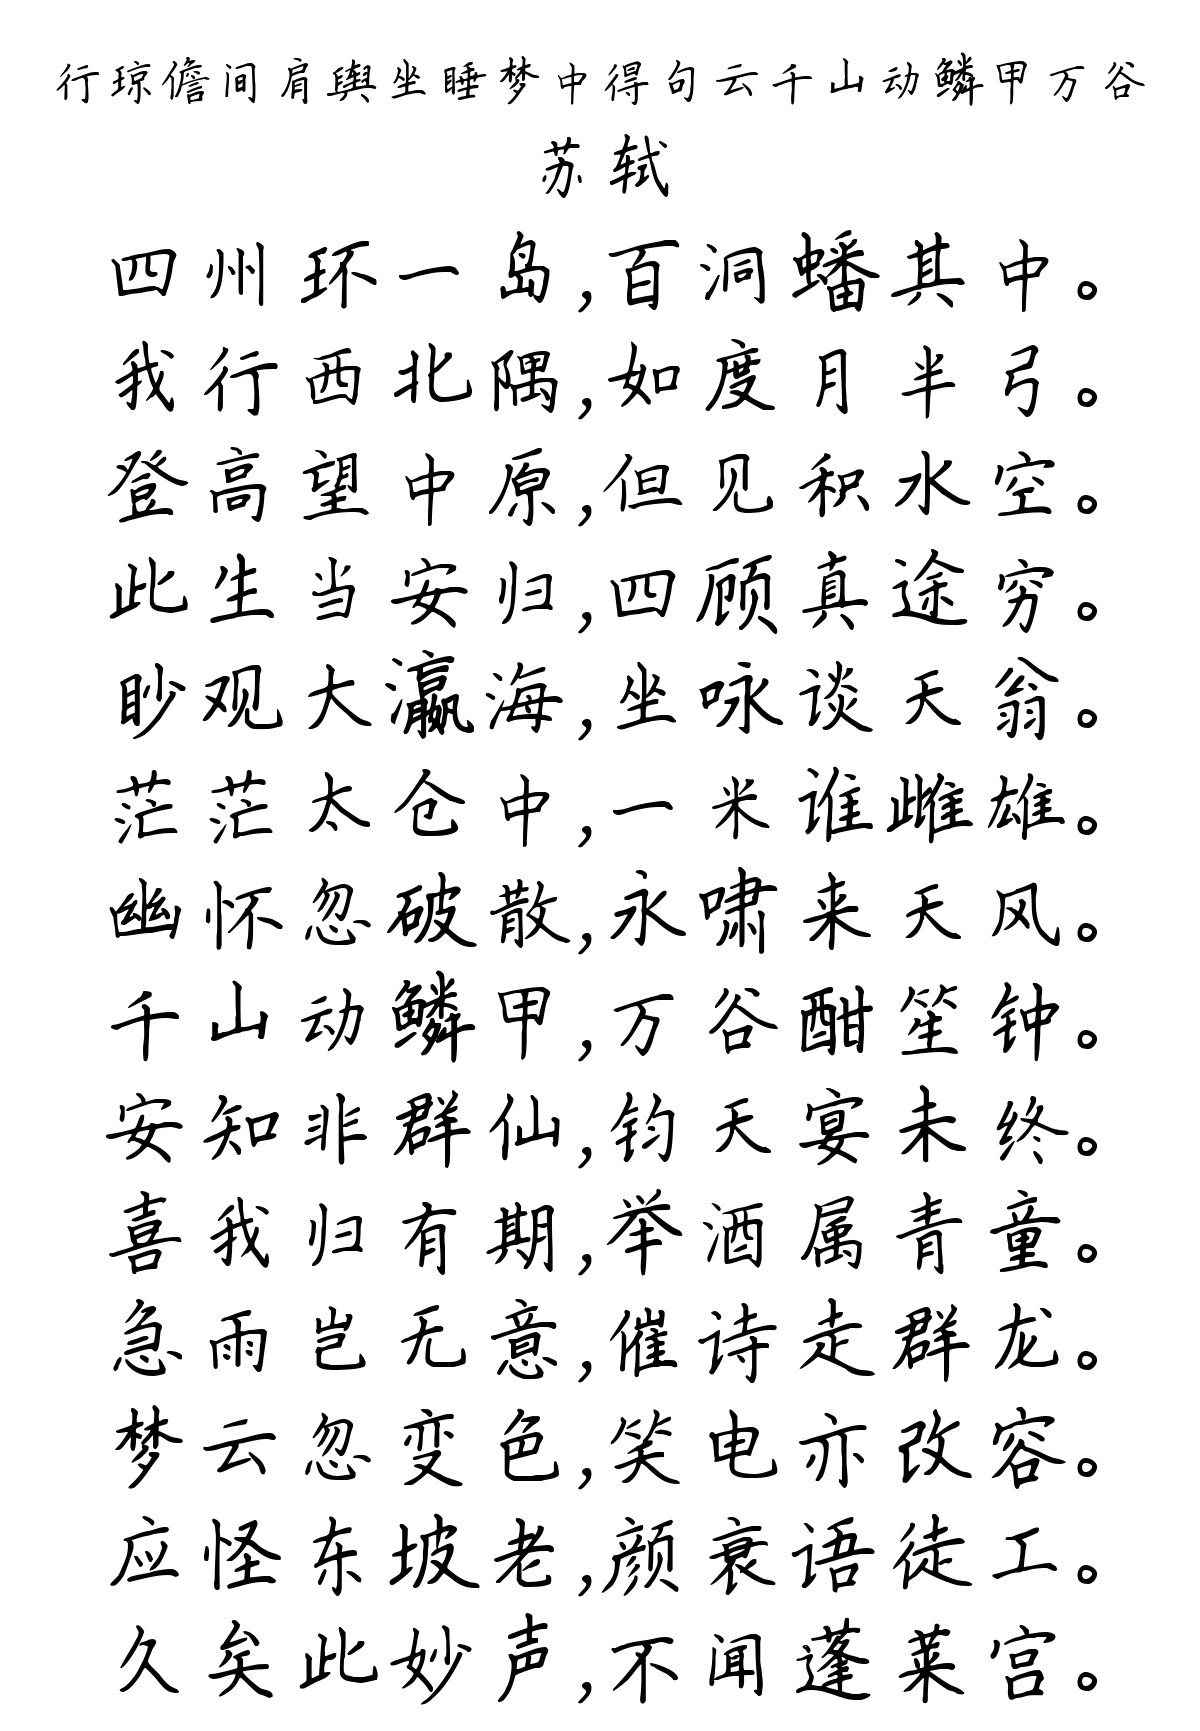 行琼儋间肩舆坐睡梦中得句云千山动鳞甲万谷
苏轼
四州环一岛,百洞蟠其中。
我行西北隅,如度月半弓。
登高望中原,但见积水空。
此生当安归,四顾真途穷。
眇观大瀛海,坐咏谈天翁。
茫茫太仓中,一米谁雌雄。
幽怀忽破散,永啸来天风。
千山动鳞甲,万谷酣笙钟。
安知非群仙,钧天宴未终。
喜我归有期,举酒属青童。
急雨岂无意,催诗走群龙。
梦云忽变色,笑电亦改容。
应怪东坡老,颜衰语徒工。
久矣此妙声,不闻蓬莱宫。